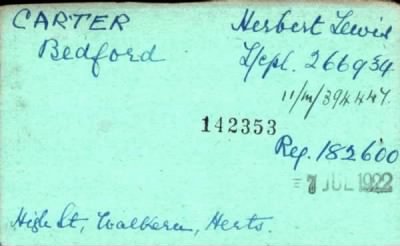 CARTER Herbert Lewis
Bedford L/cpl. 266934
11/M/394447.
142353
Reg. 182600
7 JUL 1922
High St, Walkern, Herts.